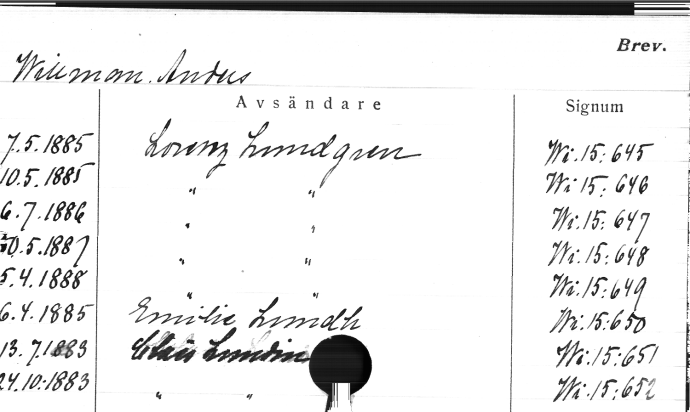 Brev.
Willman. Anders
Avsändare Signum
7.5.1885 Lorenz Lundgren Wi.15:645
10.5.1885 " " Wi 15: 646
6.7.1886 " " Wi.15: 647
30.5.1887 " " Wi.15: 648
5.4.1888 " " Wi.15:649
6.4.1885 Emilie Lundh Wi.15:650
13.7.1883 Claës Lundin Wi.15:651
24.10.1883 " " Wi.15:652